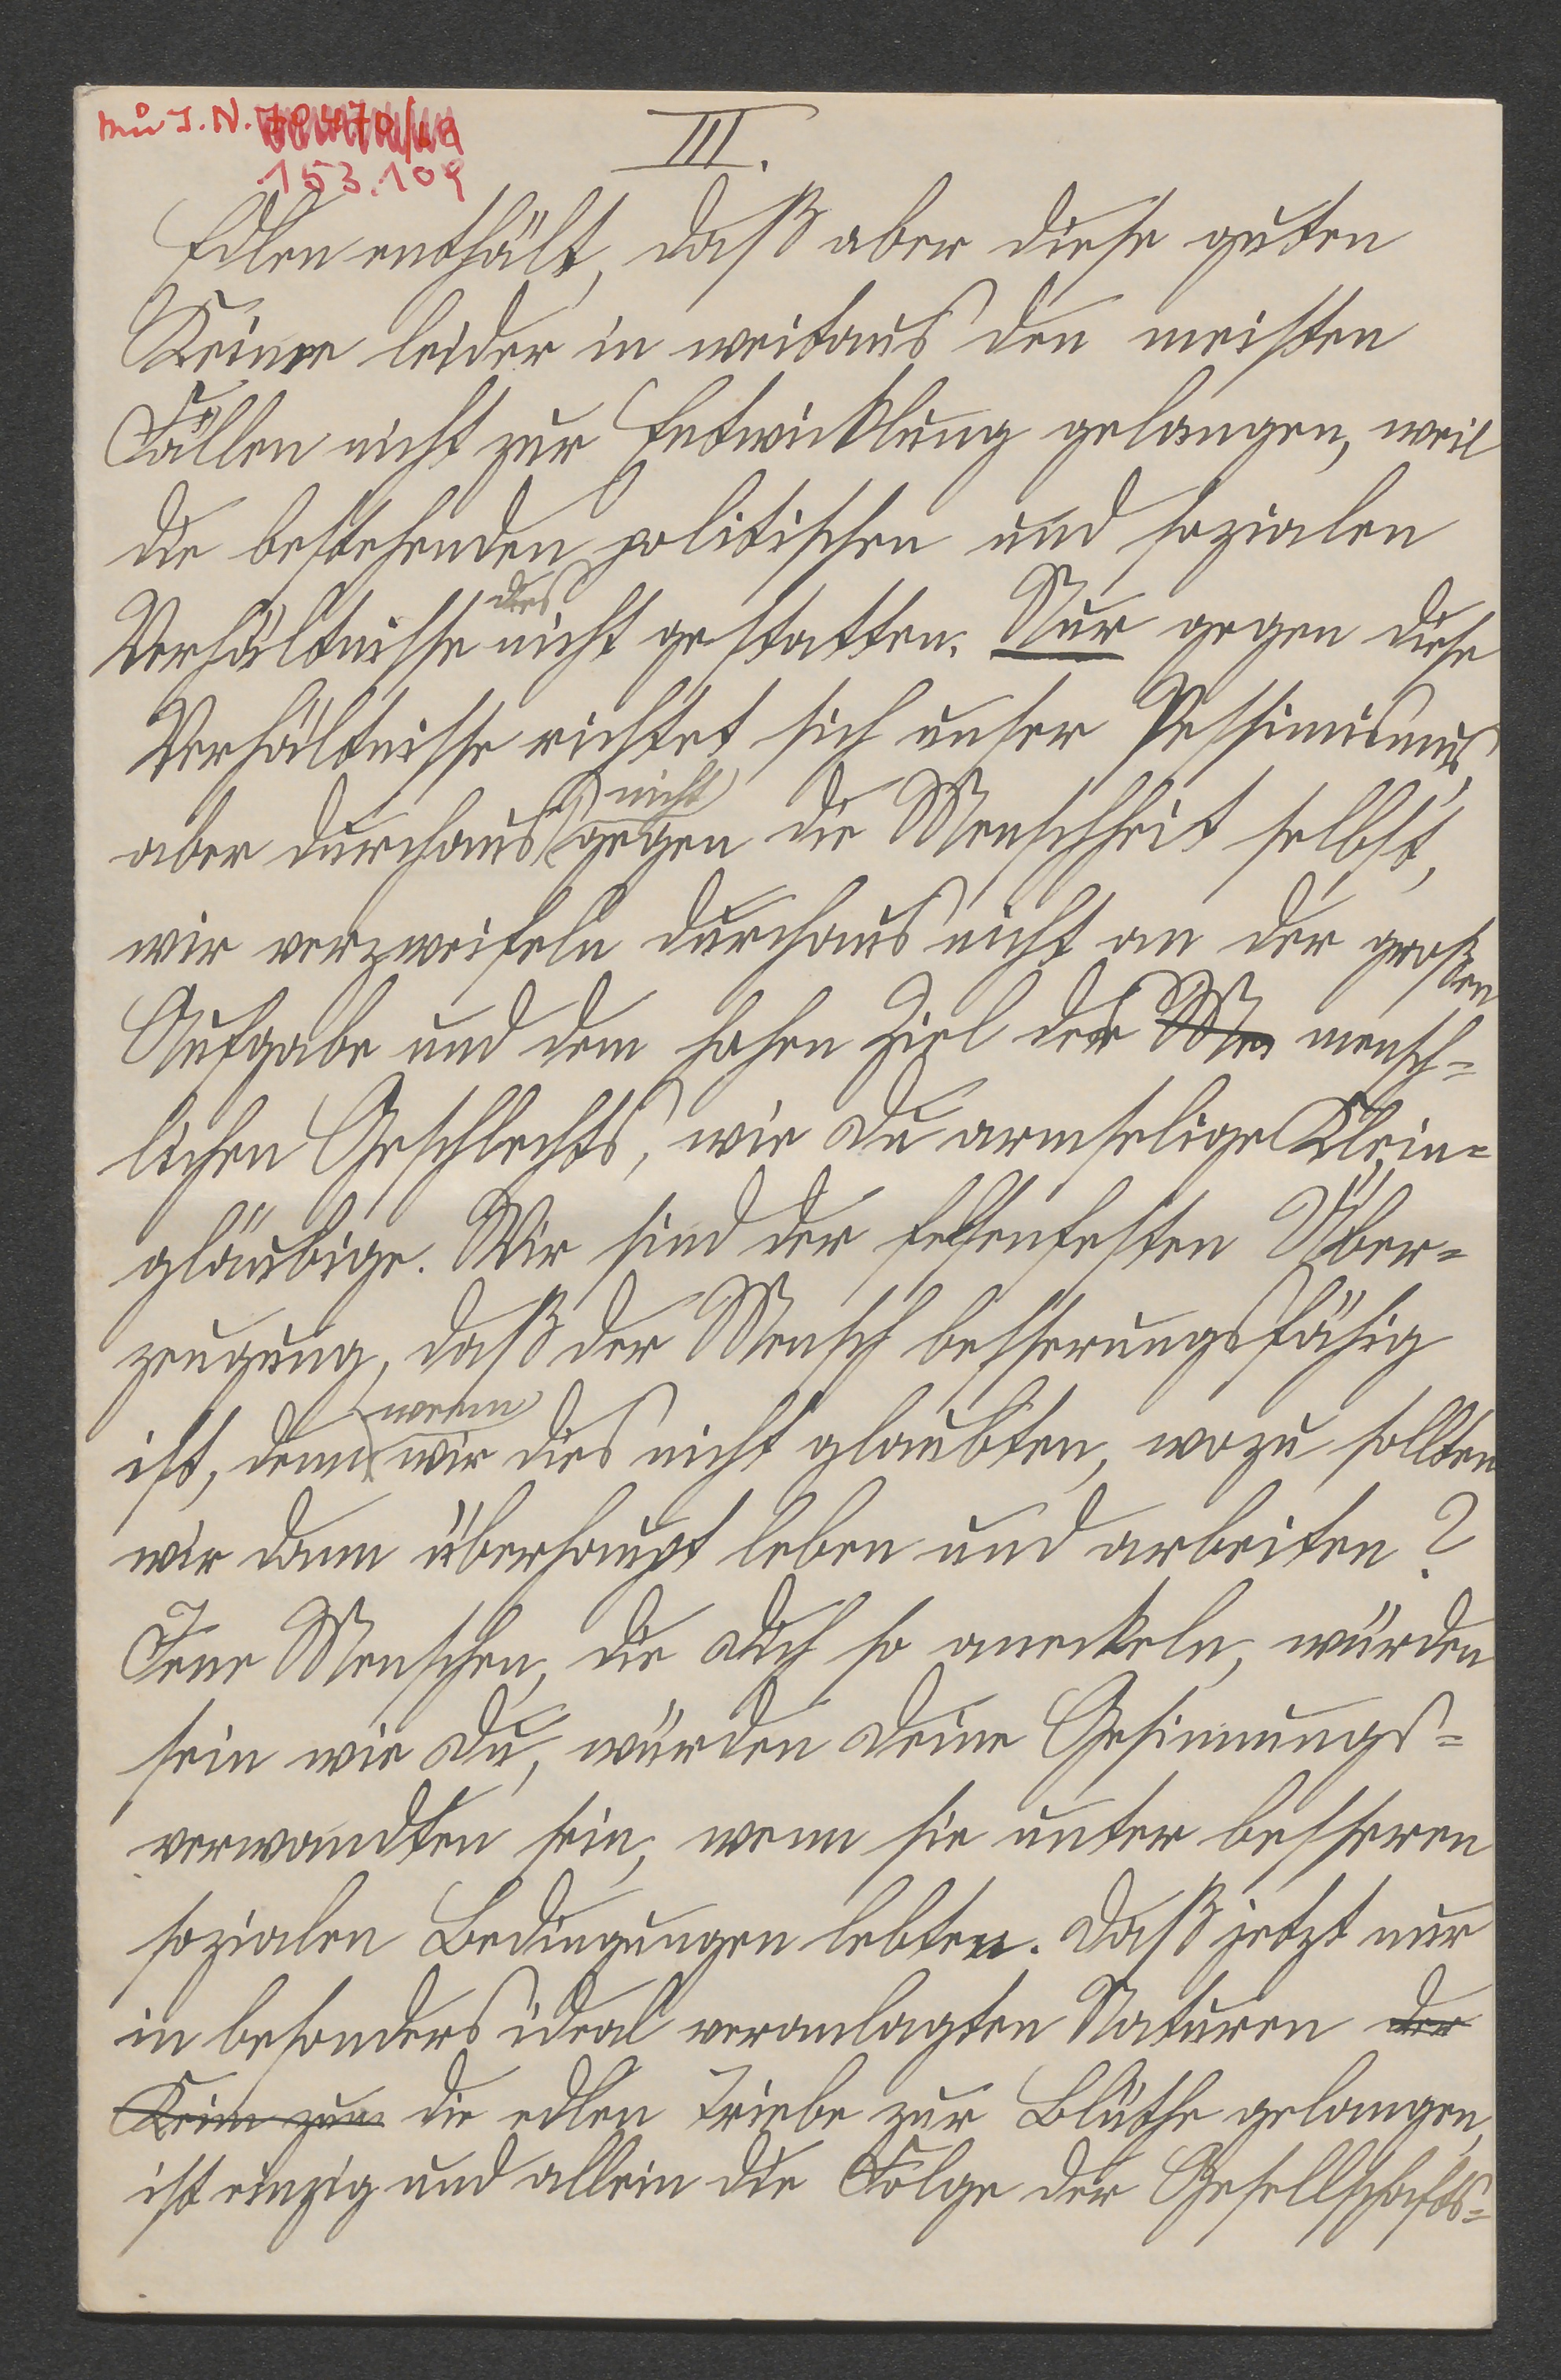 III.
153.109
Edlen enthält, daß aber diese guten
Keime leider in weitaus den meisten
Fällen nicht zur Entwicklung gelangen, weil
die bestehenden politischen und sozialen
Verhältnisse dies nicht gestatten. Nur gegen diese
Verhältnisse richtet sich unser Pessimismus,
aber durchaus nicht gegen die Menschheit selbst,
wir verzweifeln durchaus nicht an der großen
Aufgabe und dem hohen Ziel des Men mensch-
lichen Geschlechts, wie Du armselige Klein-
gläubige. Wir sind der felsenfesten Über-
zeugung, daß der Mensch besserungsfähig
ist, denn wenn wir dies nicht glaubten, wozu sollten
wir dann überhaupt leben und arbeiten?
Jene Menschen, die Dich so aneckeln, würden
sein wie Du, würden Deine Gesinnungs-
verwandten sein, wenn sie unter besseren
sozialen Bedingungen lebten. Daß jetzt nur
in besonders ideal veranlagten Naturen der
Keim zum die edlen Triebe zur Blüthe gelangen,
ist einzig und allein die Folge der Gesellschafts-